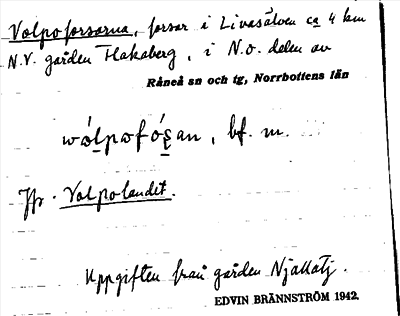 Volpoforsarna, forsar i Livasälven ca 4 km
N.V. gården Flakaberg, i N.o. delen av
Råneå sn och tg, Norrbottens län
wólpofóṣan, bf. m.
Jfr. Volpolandet.
Uppgiften från gården Njallatj.
EDVIN BRÄNNSTRÖM 1942.